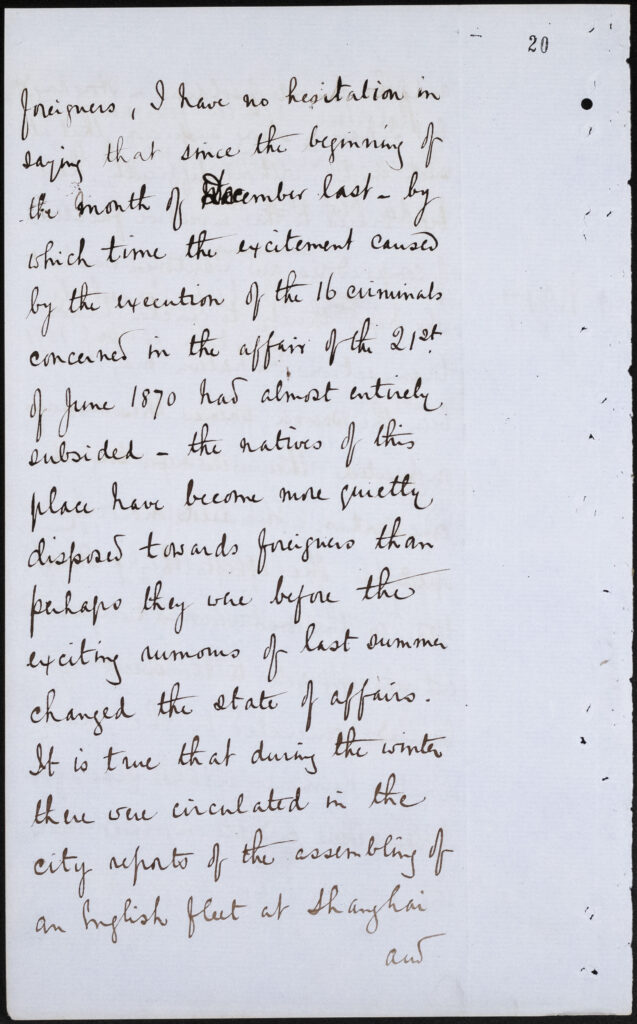 20
foreigners, I have no hesitation in
saying that since the beginning of
the month of December last – by
which time the excitement caused
by the execution of the 16 criminals
concerned in the affair of the 21st.
of June 1870 had almost entirely
subsided – the natives of this
place have become more quietly
disposed towards foreigners than
perhaps they were before the
exciting rumours of last summer
changed the state of affairs.
It is true that during the winter
there were circulated in the
city reports of the assembling of
an English fleet at Shanghai
and